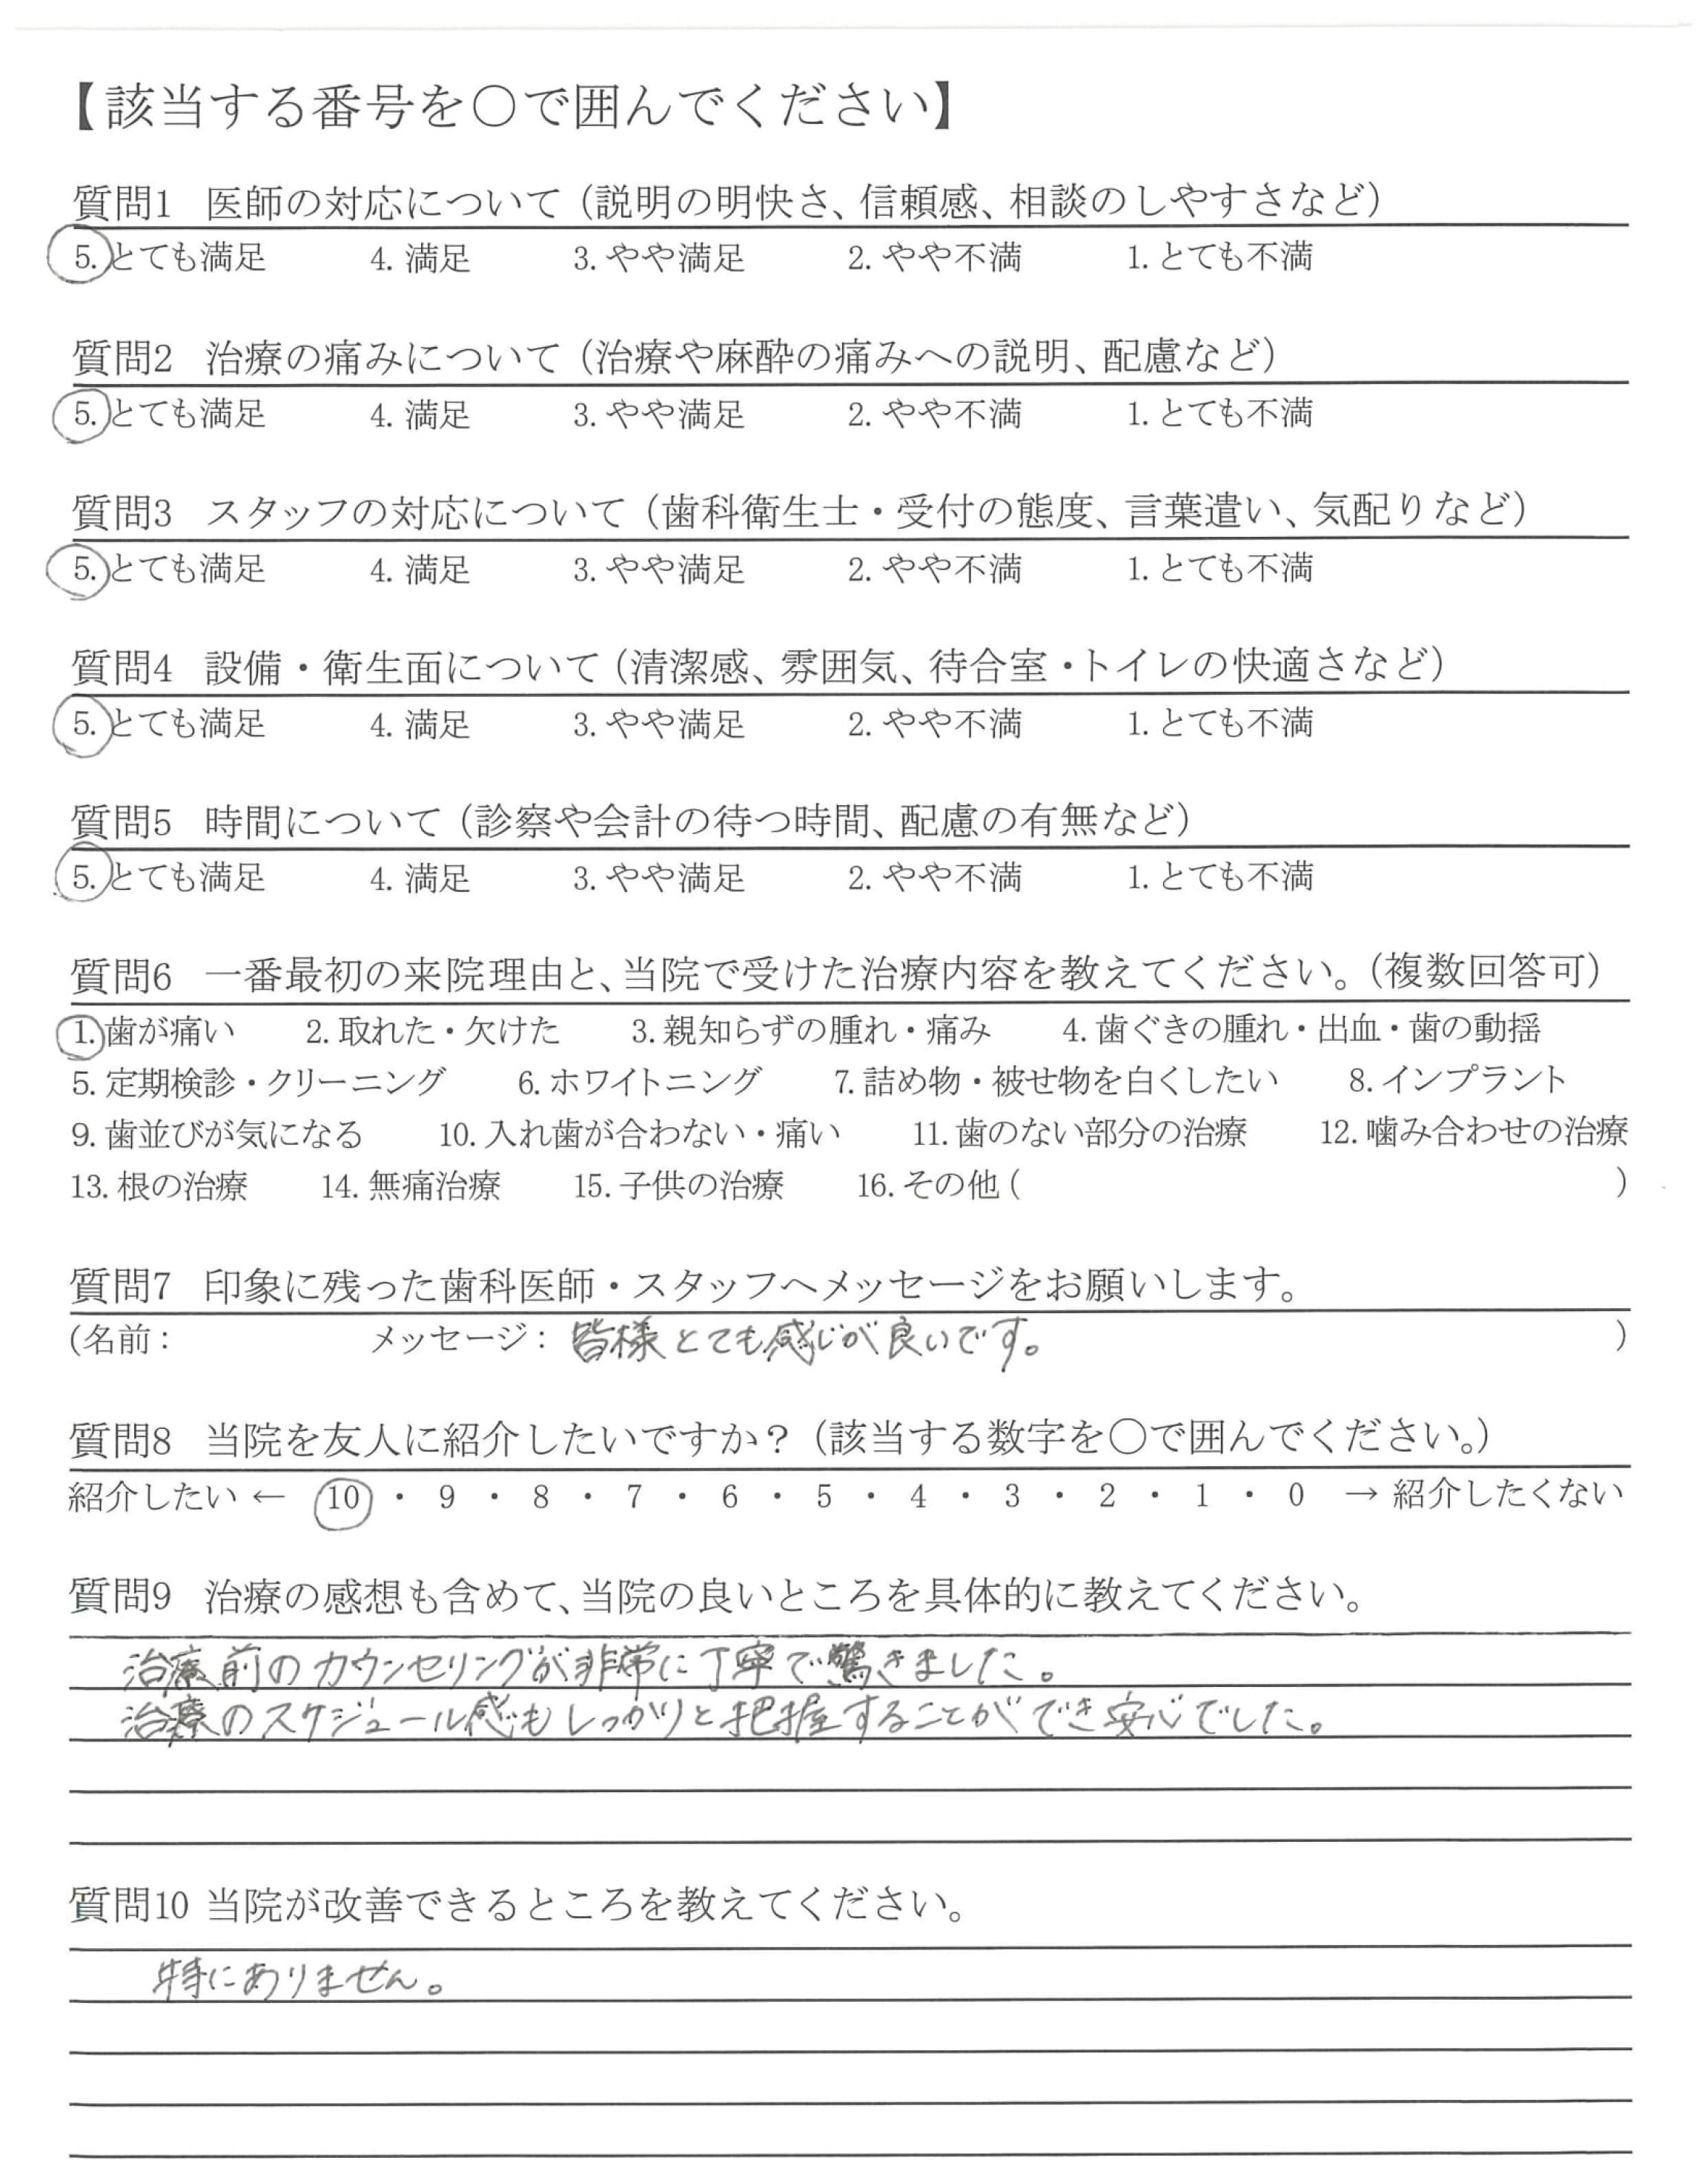 【該当する番号を○で囲んでください】
質問1 医師の対応について（説明の明快さ、信頼感、相談のしやすさなど）
5. とても満足 4. 満足 3. やや満足 2. やや不満 1. とても不満
質問2 治療の痛みについて（治療や麻酔の痛みへの説明、配慮など）
5. とても満足 4. 満足 3. やや満足 2. やや不満 1. とても不満
質問3 スタッフの対応について（歯科衛生士・受付の態度、言葉遣い、気配りなど）
5. とても満足 4. 満足 3. やや満足 2. やや不満 1. とても不満
質問4 設備・衛生面について（清潔感、雰囲気、待合室・トイレの快適さなど）
5. とても満足 4. 満足 3. やや満足 2. やや不満 1. とても不満
質問5 時間について（診察や会計の待つ時間、配慮の有無など）
5. とても満足 4. 満足 3. やや満足 2. やや不満 1. とても不満
質問6 一番最初の来院理由と、当院で受けた治療内容を教えてください。（複数回答可）
1. 歯が痛い 2. 取れた・欠けた 3. 親知らずの腫れ・痛み 4. 歯ぐきの腫れ・出血・歯の動揺
5. 定期検診・クリーニング 6. ホワイトニング 7. 詰め物・被せ物を白くしたい 8. インプラント
9. 歯並びが気になる 10. 入れ歯が合わない・痛い 11. 歯のない部分の治療 12. 噛み合わせの治療
13. 根の治療 14. 無痛治療 15. 子供の治療 16. その他（ ）
質問7 印象に残った歯科医師・スタッフへメッセージをお願いします。
（名前： メッセージ： 皆様とても感じが良いです。 ）
質問8 当院を友人に紹介したいですか？（該当する数字を○で囲んでください。）
紹介したい ← 10 ・ 9 ・ 8 ・ 7 ・ 6 ・ 5 ・ 4 ・ 3 ・ 2 ・ 1 ・ 0 → 紹介したくない
質問9 治療の感想も含めて、当院の良いところを具体的に教えてください。
治療前のカウンセリングが非常に丁寧で驚きました。
治療のスケジュール感もしっかりと把握することができ安心でした。
質問10 当院が改善できるところを教えてください。
特にありません。